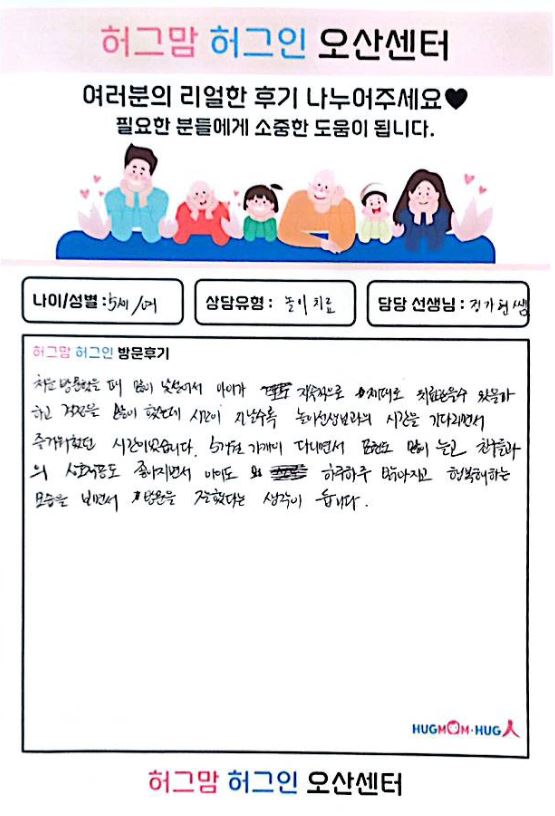 허그맘 허그인 오산센터
여러분의 리얼한 후기 나누어주세요♥
필요한 분들에게 소중한 도움이 됩니다.
나이/성별 : 5세 / 여
상담유형 : 놀이치료
담당 선생님 : 정가원쌤
허그맘 허그인 방문후기
처음 방문했을 때 많이 낯설어서 아이가 지속적으로 제대로 치료받을수 있을까
하고 걱정을 많이 했는데 시간이 지날수록 놀이선생님과의 시간을 기다리면서
즐거워했던 시간이었습니다. 5개월 가까이 다니면서 표현도 많이 늘고 친구들과
의 사회적응도 좋아지면서 아이도 하루하루 밝아지고 행복해하는
모습을 보면서 방문을 잘했다는 생각이 듭니다.
HUGMOM·HUG人
허그맘 허그인 오산센터